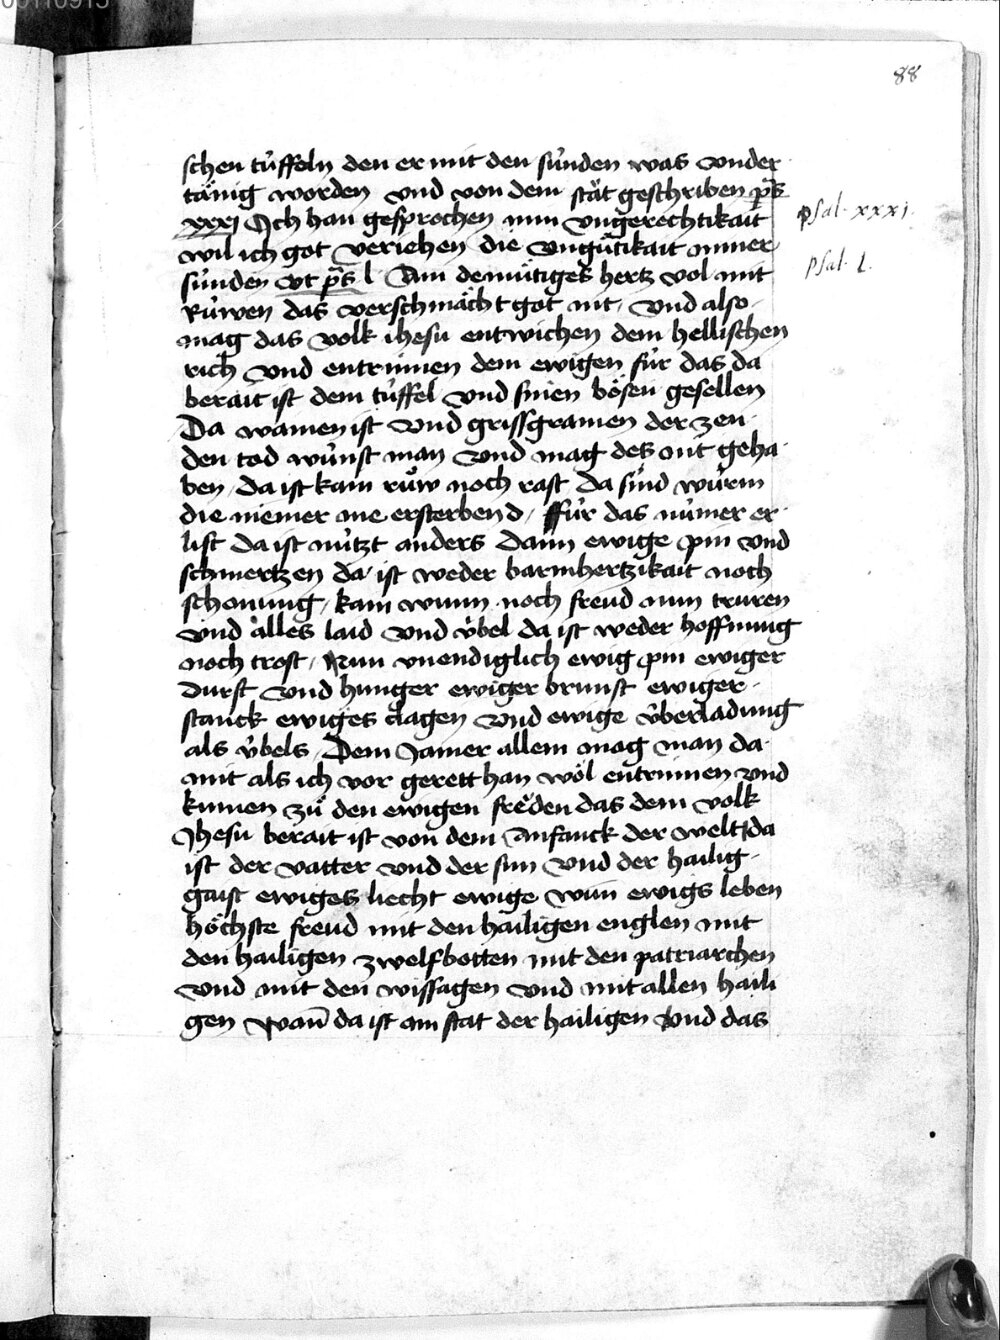 88
schen tüffeln den er mit den sünden was vnder
tänig worden vnd von dem stät geschriben ps
xxxi Ich han gesprochen min vngerechtikait
wil ich got veriehen die vngütikait miner
sünden vt ps l Ain demütiges hertz vol mit
Rüwen das verschmächt got nit, vnd also
mag das volk ihesu entwichen dem hellischen
rich vnd entrinnen dem ewigen für das da
berait ist dem tüffel vnd sinen bösen gesellen
Da wainen ist vnd grissgramen der zen
den tod wünst man vnd mag des nit geha
ben, da ist kain rüw noch rast da sind würm
die niemer me ersterbend, für das nümer er
list da ist nützt anders dann ewige pin vnd
schmertzen da ist weder barmhertzikait noch
schonung, kain wunn noch freud nun truren
vnd alles laid vnd übel da ist weder hoffnung
noch trost, Nun vnendiglich ewig pin ewiger
durst vnd hunger ewiger brunst ewiger
stanck ewiges clagen vnd ewige überladung
als übels, Dem Jamer allem mag man da
mit als ich vor gerett han wol entrinnen vnd
kumen zů den ewigen freden das dem volk
Jhesu berait ist von dem Anfanck der welt da
ist der vatter vnd der sun vnd der hailig
gaist ewiges liecht ewige wun ewigs leben
höchste freud mit den hailigen englen mit
den hailigen zwelfbotten mit den patriarchen
vnd mit den wissagen vnd mit allen haili
gen wan da ist ain stat der hailigen vnd das
Psal. xxxi.
Psal. L.